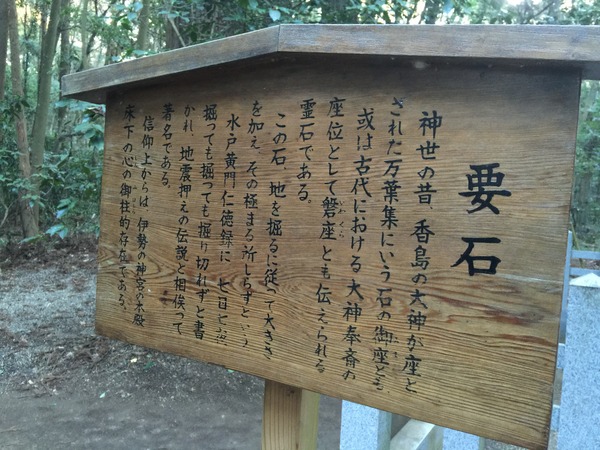 要石
神世の昔、香島の大神が座と
された万葉集にいう石の御座とも
或は古代における大神奉斎の
座位として磐座とも伝えられる
いわくら
霊石である。
この石、地を掘るに従って大きさ
を加え、その極まる所しらずという
水戸黄門仁徳録に、七日七夜
掘っても掘っても掘り切れずと書
かれ、地震押えの伝説と相俟って
著名である。
信仰上からは、伊勢の神宮の本殿
床下の心の御柱的存在である。